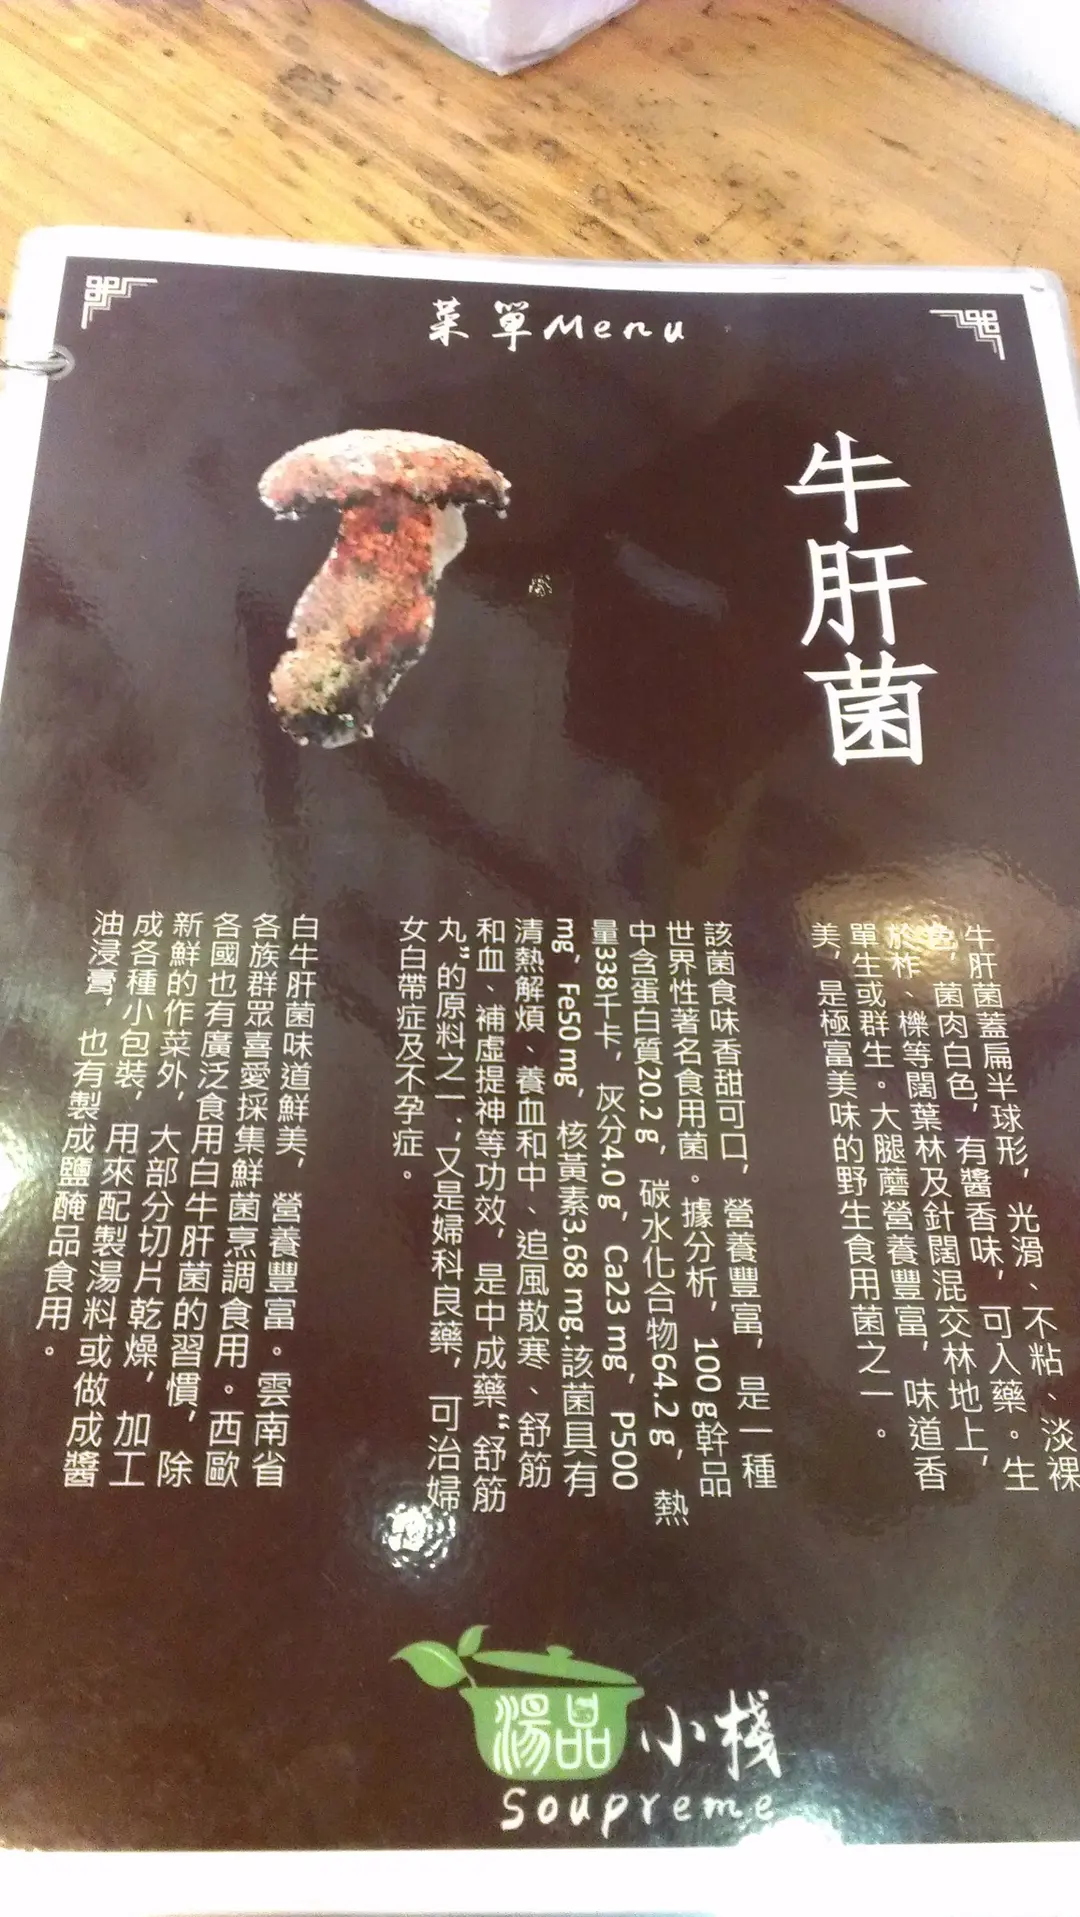 菜單Menu
牛肝菌
牛肝菌蓋扁半球形，光滑、不粘、淡裸
色，菌肉白色，有醬香味，可入藥。生
於柞、櫟等闊葉林及針闊混交林地上，
單生或群生。大腿蘑營養豐富，味道香
美，是極富美味的野生食用菌之一。
該菌食味香甜可口，營養豐富，是一種
世界性著名食用菌。據分析，100 g幹品
中含蛋白質20.2 g，碳水化合物64.2 g，熱
量338千卡，灰分4.0 g，Ca23 mg，P500
mg，Fe50 mg，核黃素3.68 mg.該菌具有
清熱解煩、養血和中、追風散寒、舒筋
和血、補虛提神等功效，是中成藥“舒筋
丸”的原料之一，又是婦科良藥，可治婦
女白帶症及不孕症。
白牛肝菌味道鮮美，營養豐富。雲南省
各族群眾喜愛採集鮮菌烹調食用。西歐
各國也有廣泛食用白牛肝菌的習慣，除
新鮮的作菜外，大部分切片乾燥，加工
成各種小包裝，用來配製湯料或做成醬
油浸膏，也有製成鹽醃品食用。
湯品小棧
Soupreme